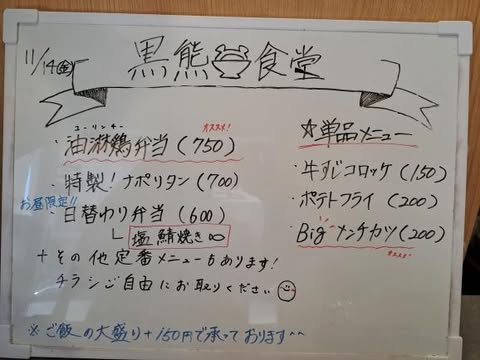 11/14(金)
黒熊食堂
ユーリンチー オススメ!
・油淋鶏弁当(750)
・特製!ナポリタン(700)
お昼限定!!
・日替わり弁当(600)
塩鯖焼き
+その他定番メニューもあります!
チラシご自由にお取りください
☆単品メニュー
・牛すじコロッケ(150)
・ポテトフライ(200)
・Bigメンチカツ(200)
オススメ!
※ご飯の大盛り+150円で承っております^^